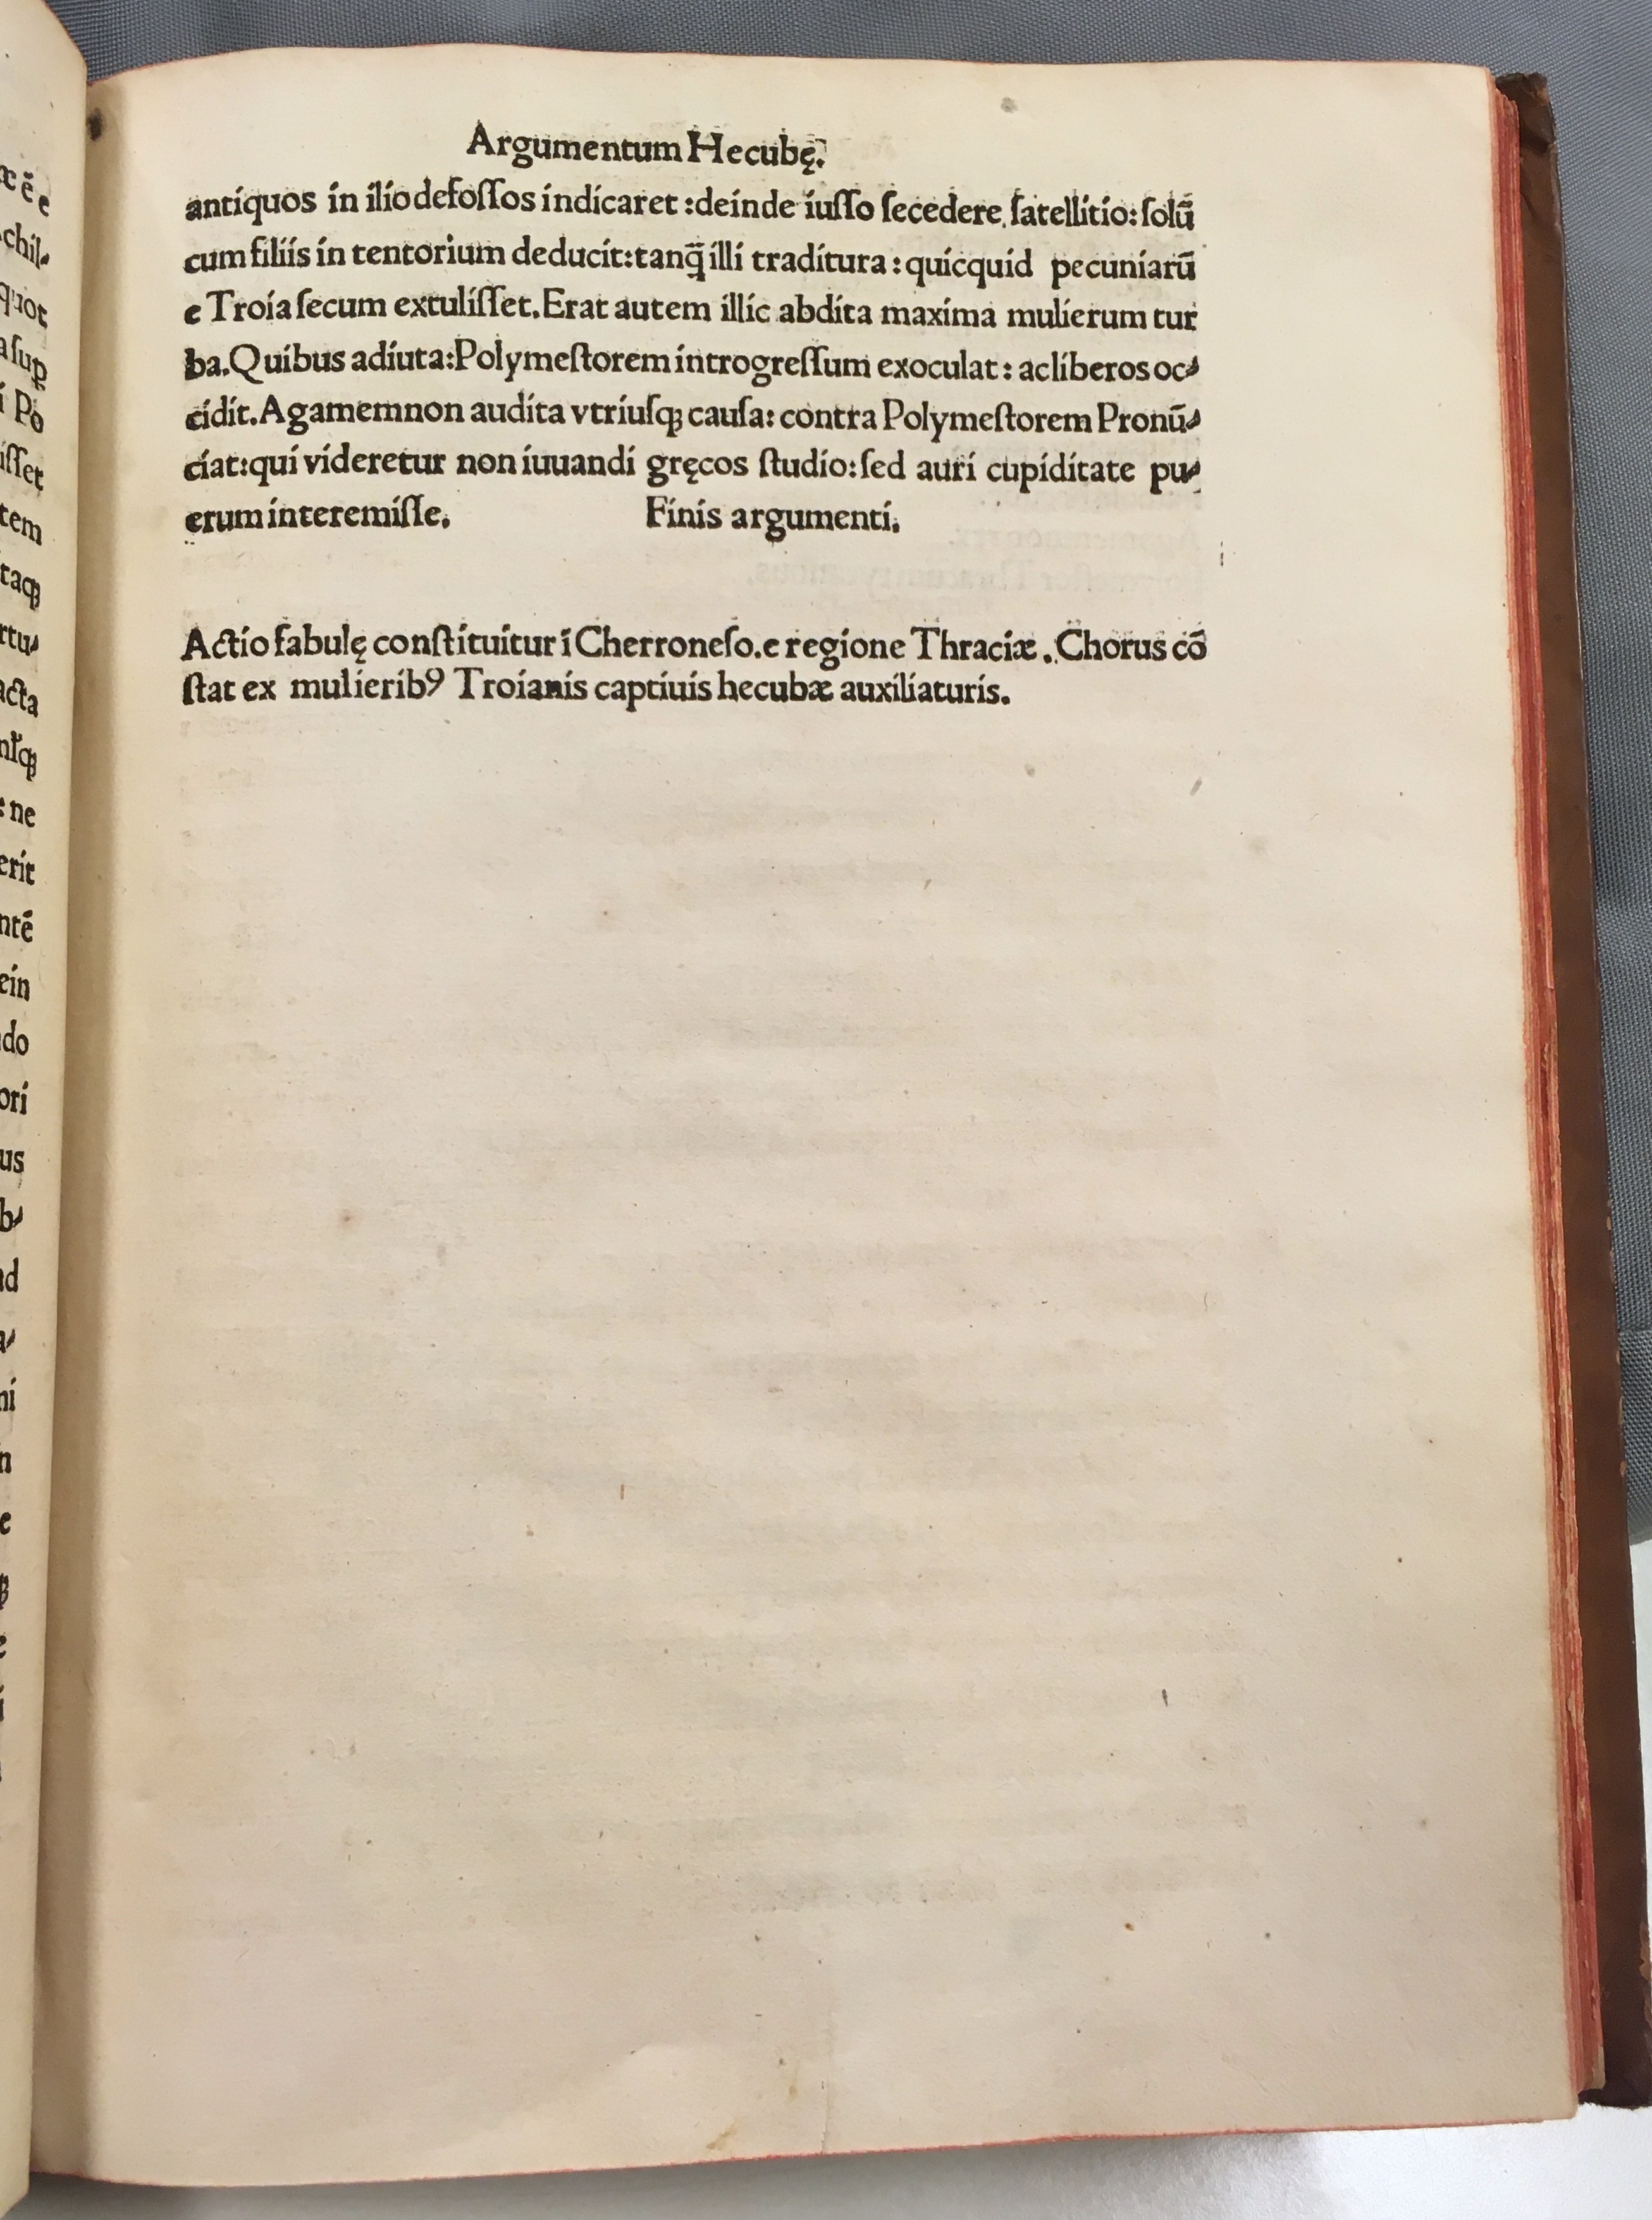 Argumentum Hecubę.
antiquos in ilio defoſſos indicaret :deinde iuſſo ſecedere ſatellitio: ſolū
cum filiis in tentorium deducit: tanq̃ illi traditura : quicquid pecuniarū
e Troia ſecum extuliſſet. Erat autem illic abdita maxima mulierum tur
ba. Quibus adiuta: Polymeſtorem introgreſſum exoculat : ac liberos oc⸗
cidit. Agamemnon audita vtriuſq; cauſa: contra Polymeſtorem Pronū⸗
ciat: qui videretur non iuuandi gręcos ſtudio: ſed auri cupiditate pu⸗
erum interemiſſe. Finis argumenti.
Actio fabulę conſtituitur ī Cherroneſo. e regione Thraciæ . Chorus cō
ſtat ex mulierib⁹ Troianis captiuis hecubæ auxiliaturis.